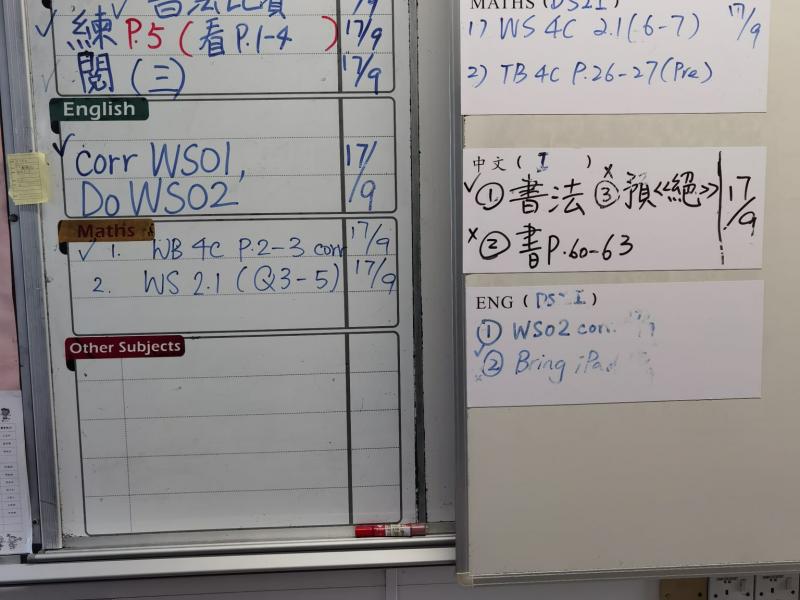 練 P.5 (看 P.1-4 ) 17/9
閱 (三) 17/9
English
Corr WS01, 17/
Do WS02 /9
Maths
✓ 1. WB 4C P.2-3 corr 17/9
2. WS 2.1 (Q3-5) 17/9
Other Subjects
MATHS (DS2I)
1) WS 4C 2.1 (6-7) 17/9
2) TB 4C P.26-27 (Pre)
中文 ( I )
✓ ① 書法 x ③ 預《絕》 17/9
x ② 書 P.60-63
ENG (DS I)
① WS02 corr.
② Bring iPad